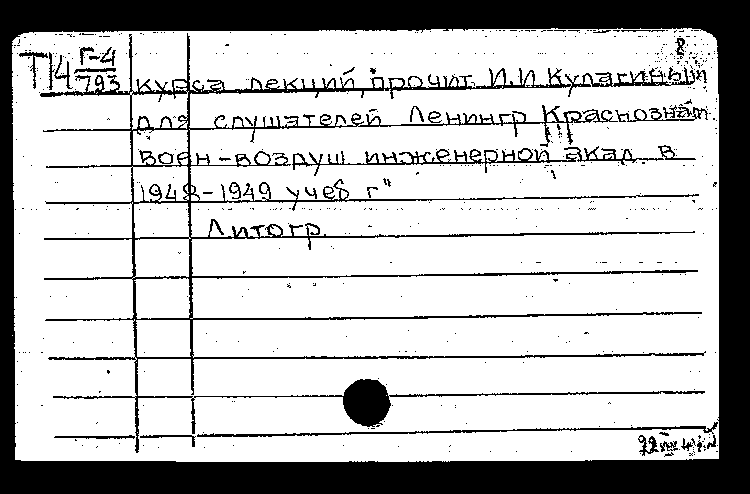 8
Т14 Г-4/793
курса лекций, прочит. И.И Кулагиным
для слушателей Ленингр Краснознам.
воен-воздуш инженерной акад. в
1948-1949 учеб г"
Литогр.